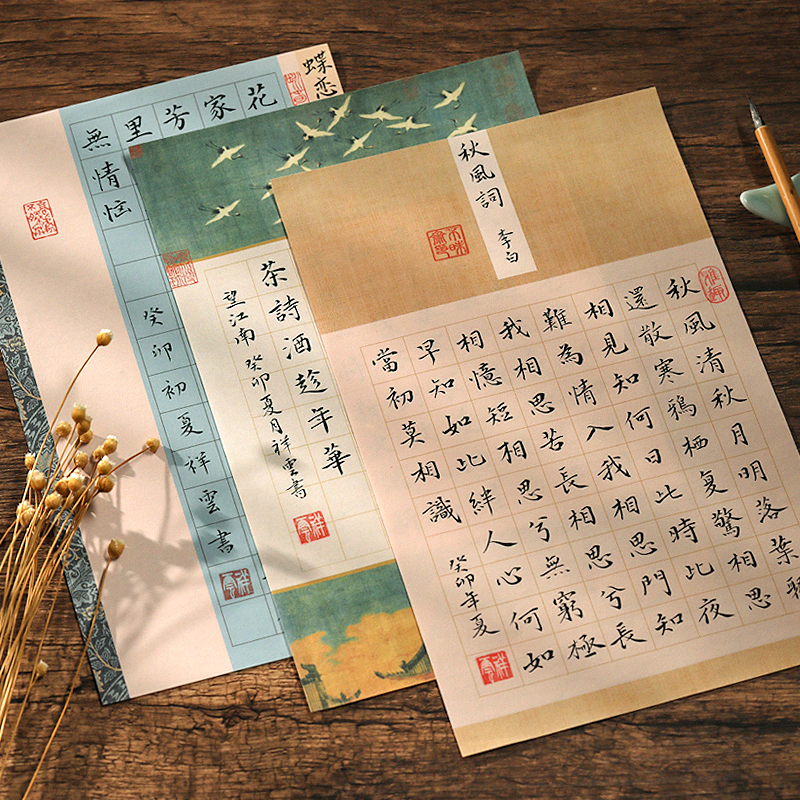 蝶恋
花
家
芳
里
無情恼
癸卯初夏祥雲書
茶詩酒趁年華
望江南 癸卯夏月祥雲書
秋風詞 李白
秋風清秋月明落葉
還散寒鴉栖复驚相思
相見知何日此時此夜
難為情入我相思門知
我相思若長相思兮長
相憶短相思兮無窮極
早知如此絆人心何如
當初莫相識
癸卯年夏